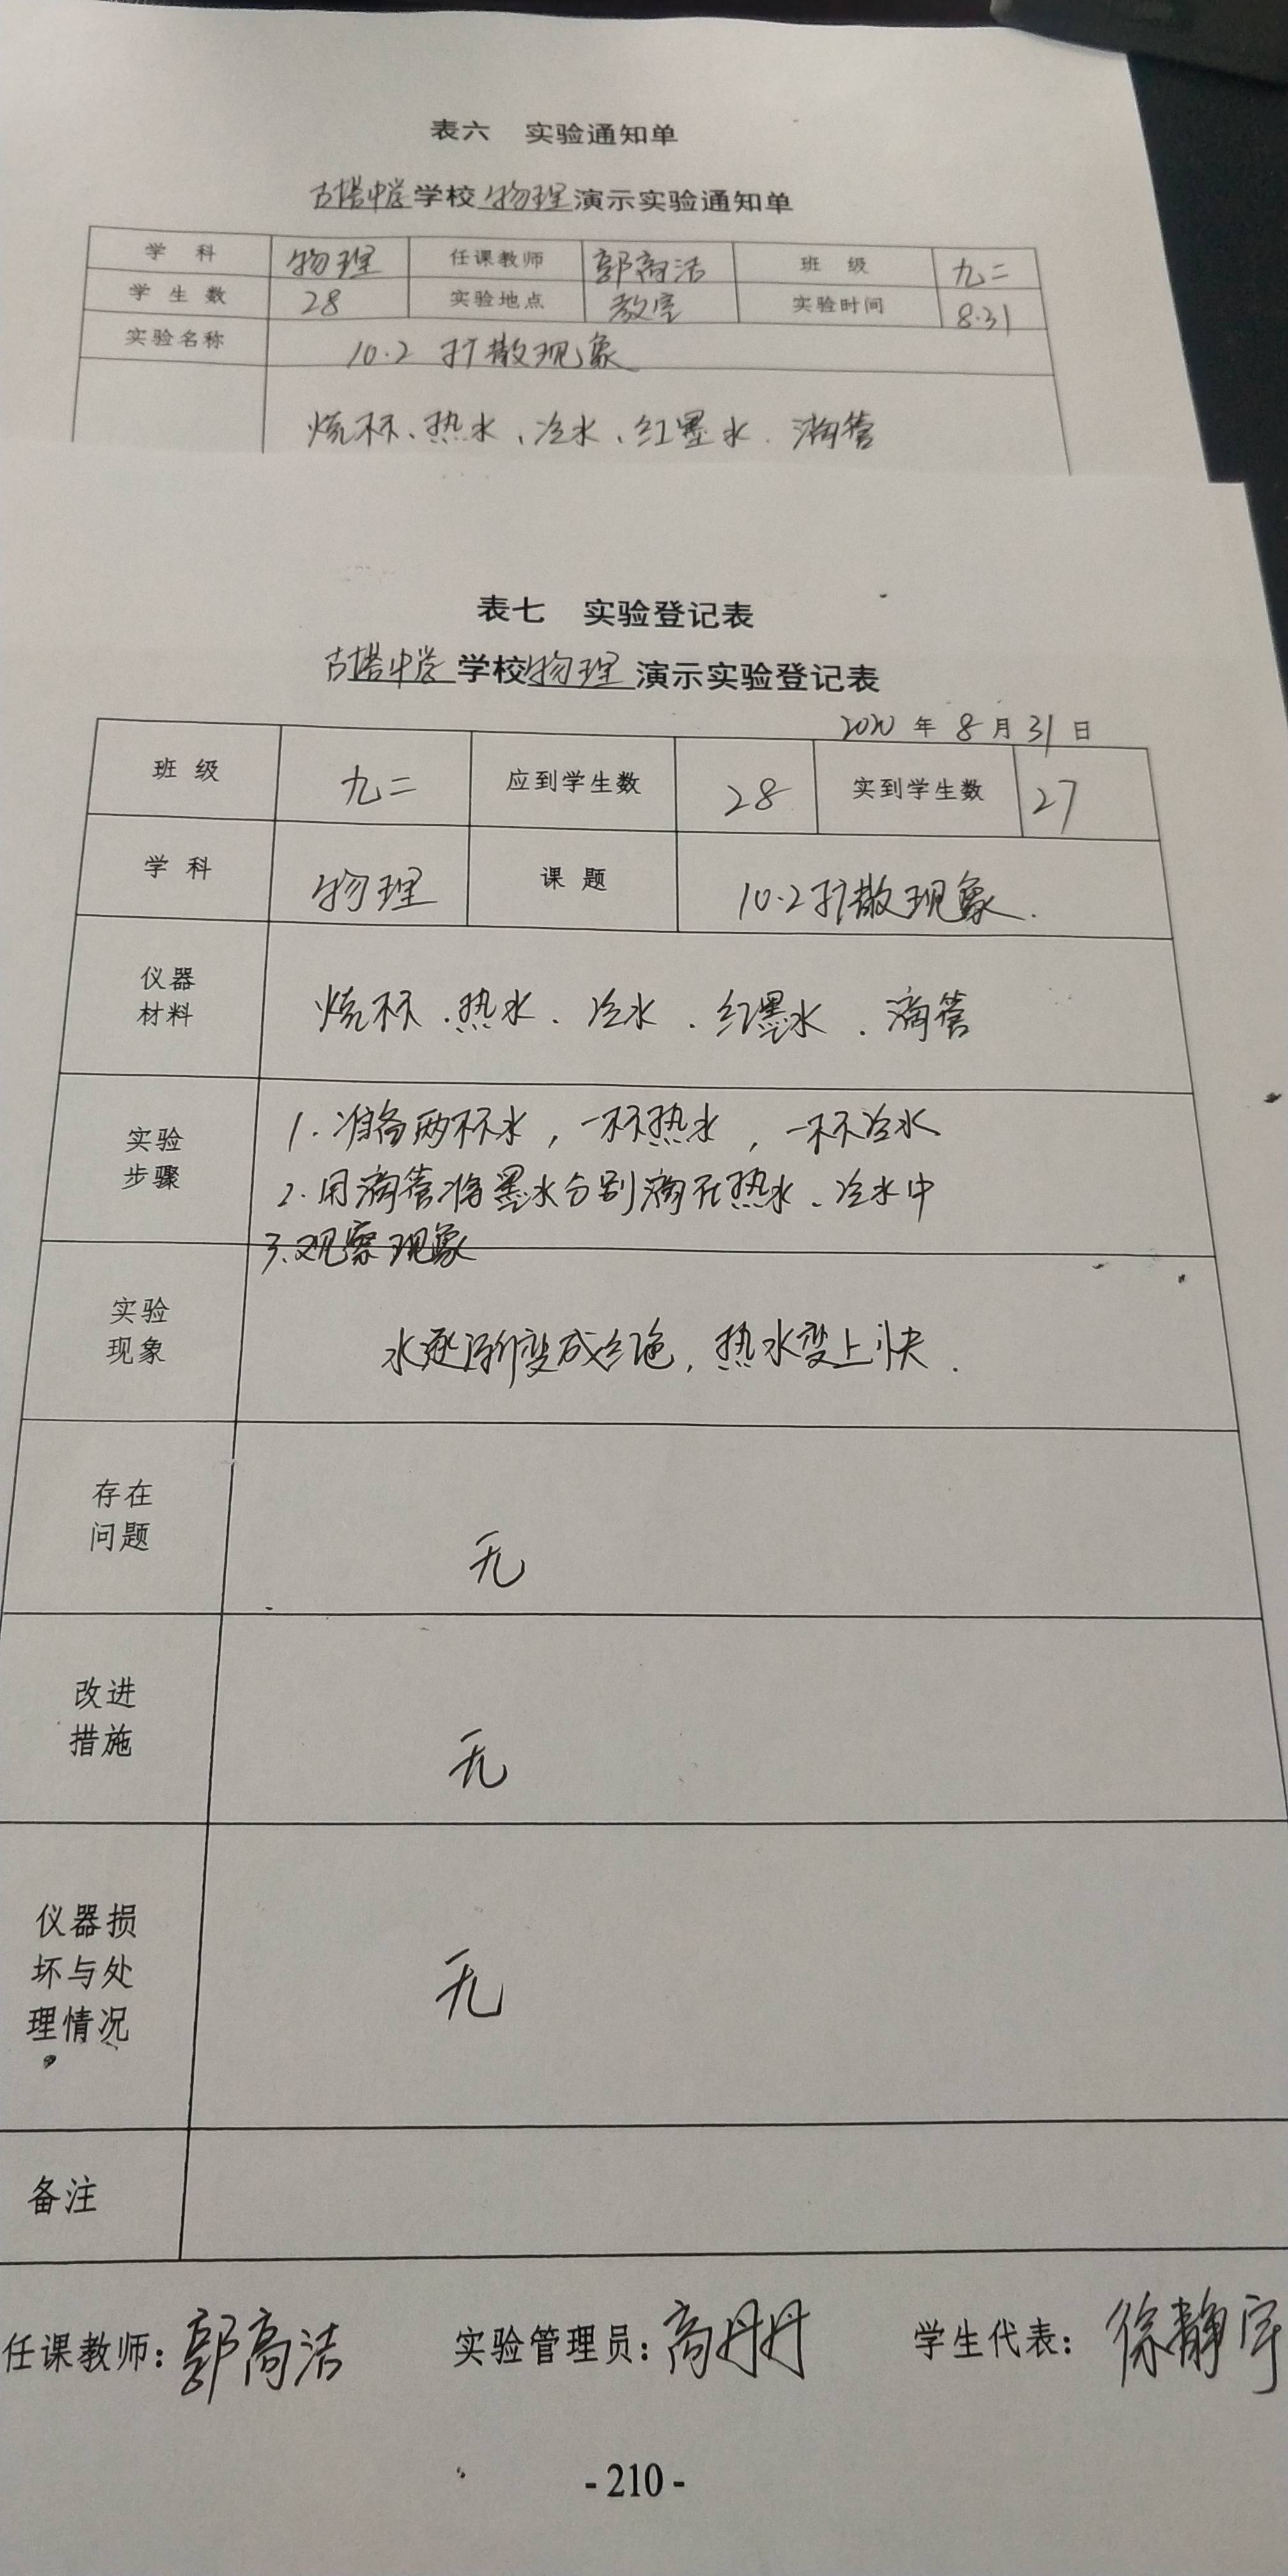 表六 实验通知单
古塔中学学校物理演示实验通知单
学 科 物理 任课教师 郭高洁 班 级 九二
学 生 数 28 实验地点 教室 实验时间 8.31
实验名称 10.2 扩散现象
烧杯、热水、冷水、红墨水.滴管
表七 实验登记表
古塔中学学校物理演示实验登记表
2020年8月31日
班 级 九二 应到学生数 28 实到学生数 27
学 科 物理 课 题 10.2扩散现象.
仪器
材料
烧杯.热水.冷水.红墨水.滴管
实验
步骤
1.准备两杯水,一杯热水,一杯冷水
2.用滴管将墨水分别滴在热水、冷水中
3.观察现象
实验
现象
水逐渐变成红色,热水变上快.
存在
问题
无
改进
措施
无
仪器损
坏与处
理情况
无
备注
任课教师:郭高洁 实验管理员:高丹丹 学生代表:徐静宇
-210-